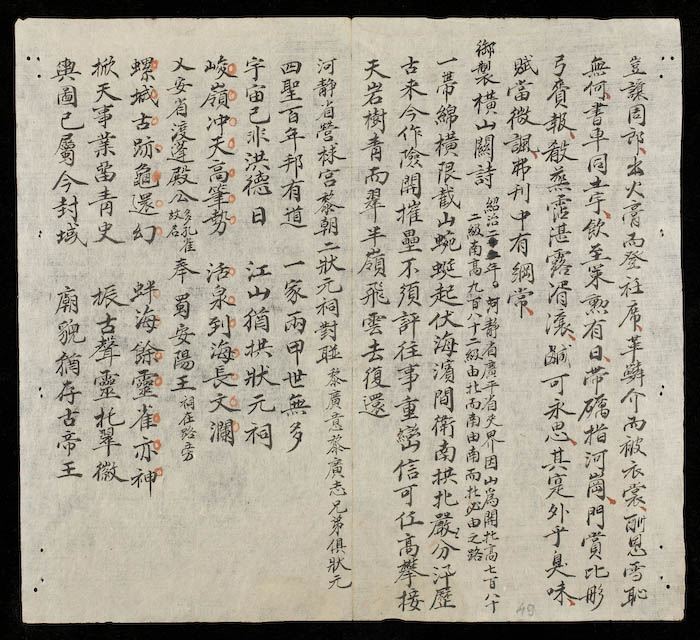 豈讓周郎出火膏而登衽席革蘚介而被衣裳刷恩雪恥
無何書車同土宇飲至策勲有日帶礪指河崗門賞比彤
弓賚報殽蒸霑湛露滑瀼鹹可永思其寔外乎臭味
賦當微諷弗刊中有綱常
御製橫山關詩 紹治二年河靜省廣平省夾界因山為關北高七百八十
二級南高九百八十二級由北而南由南而北必由之路
一帶綿橫限截山蜿蜒起伏海濱間衛南拱北嚴分汛歷
古来今作險開摧壘不須評往事重巒信可任高攀接
天岩樹青而翠半嶺飛雲去復還
河靜省營棣宮黎朝二狀元祠對聯 黎廣意黎廣志兄弟俱狀元
四聖百年邦有道 一家兩甲世無多
宇宙已非洪德日 江山猶拱狀元祠
峻嶺冲天高筆勢 活泉到海長文瀾
乂安省演蓬殿 公多孔雀故名 奉蜀安陽王 祠在路旁
螺城古跡龜還幻 蚌海餘靈雀亦神
掀天事業留青史 振古聲靈托翠微
輿圖已屬今封域 廟貌猶存古帝王
49